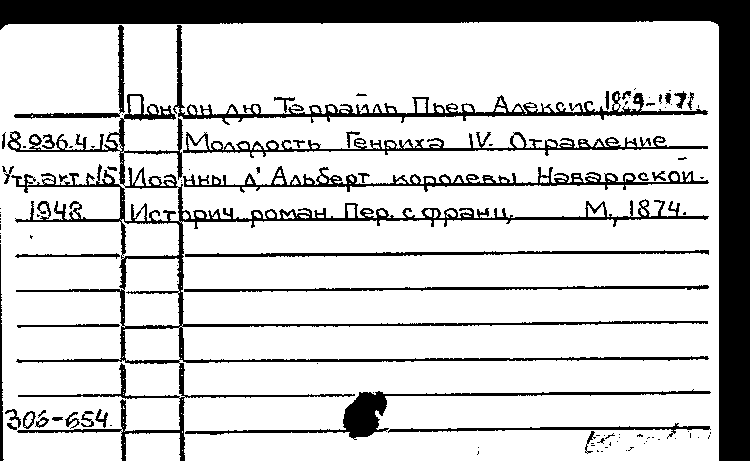 Понсон дю Террайль, Пьер Алексис, 1829-1871.
18.936.4.15 Молодость Генриха IV. Отравление
Утр.акт.№15 Иоанны д'Альберт королевы Наваррской.
1948. Историч. роман. Пер. с франц. М., 1874.
306-654